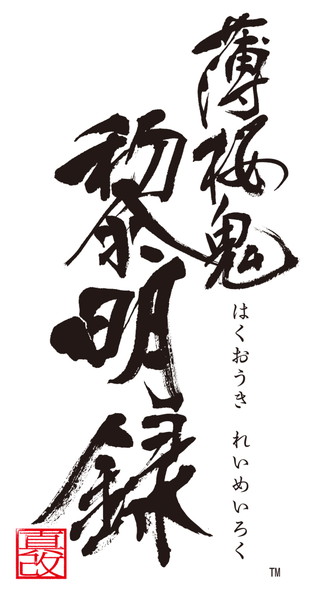 薄桜鬼
黎明録
はくおうき れいめいろく
真改
TM